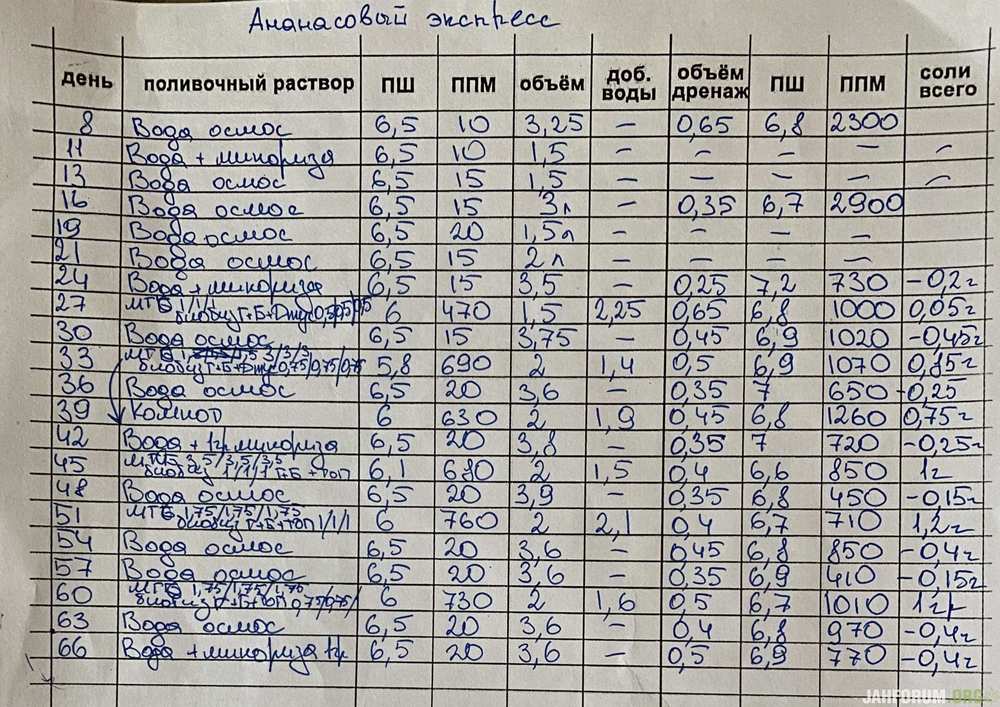 Ананасовый экспресс
день поливочный раствор ПШ ППМ объём доб. воды объём дренаж ПШ ППМ соли всего
8 Вода осмос 6,5 10 3,25 – 0,65 6,8 2300
11 Вода + микориза 6,5 10 1,5 – – – – –
13 Вода осмос 6,5 15 1,5 – – – – –
16 Вода осмос 6,5 15 3л – 0,35 6,7 2900
19 Вода осмос 6,5 20 1,5л – – – –
21 Вода осмос 6,5 15 2л – – – –
24 Вода + микориза 6,5 15 3,5 – 0,25 7,2 730 -0,2г
27 МГБ 1/1/1 6 470 1,5 2,25 0,65 6,8 1000 0,05г
30 Вода осмос 6,5 15 3,75 – 0,45 6,9 1020 -0,45г
33 5,8 690 2 1,4 0,5 6,9 1070 0,85г
36 Вода осмос 6,5 20 3,6 – 0,35 7 650 -0,25
39 Компот 6 630 2 1,9 0,45 6,8 1260 0,75г
42 Вода + 1гр. микориза 6,5 20 3,8 – 0,35 7 720 -0,25г
45 МГБ 3,5/3,5/3,5 6,1 680 2 1,5 0,4 6,6 850 1г
48 Вода осмос 6,5 20 3,9 – 0,35 6,8 450 -0,15г
51 МГБ 1,75/1,75/1,75
биобизз Г+Б+топ 1/1/1 6 760 2 2,1 0,4 6,7 710 1,2г
54 Вода осмос 6,5 20 3,6 – 0,45 6,8 850 -0,4г
57 Вода осмос 6,5 20 3,6 – 0,35 6,9 410 -0,15г
60 МГБ 1,75/1,75/1,75 6 730 2 1,6 0,5 6,7 1010 1гр
63 Вода осмос 6,5 20 3,6 – 0,4 6,8 970 -0,4г
66 Вода + микориза 1гр. 6,5 20 3,6 – 0,5 6,9 770 -0,4г
JAHFORUM.ORG